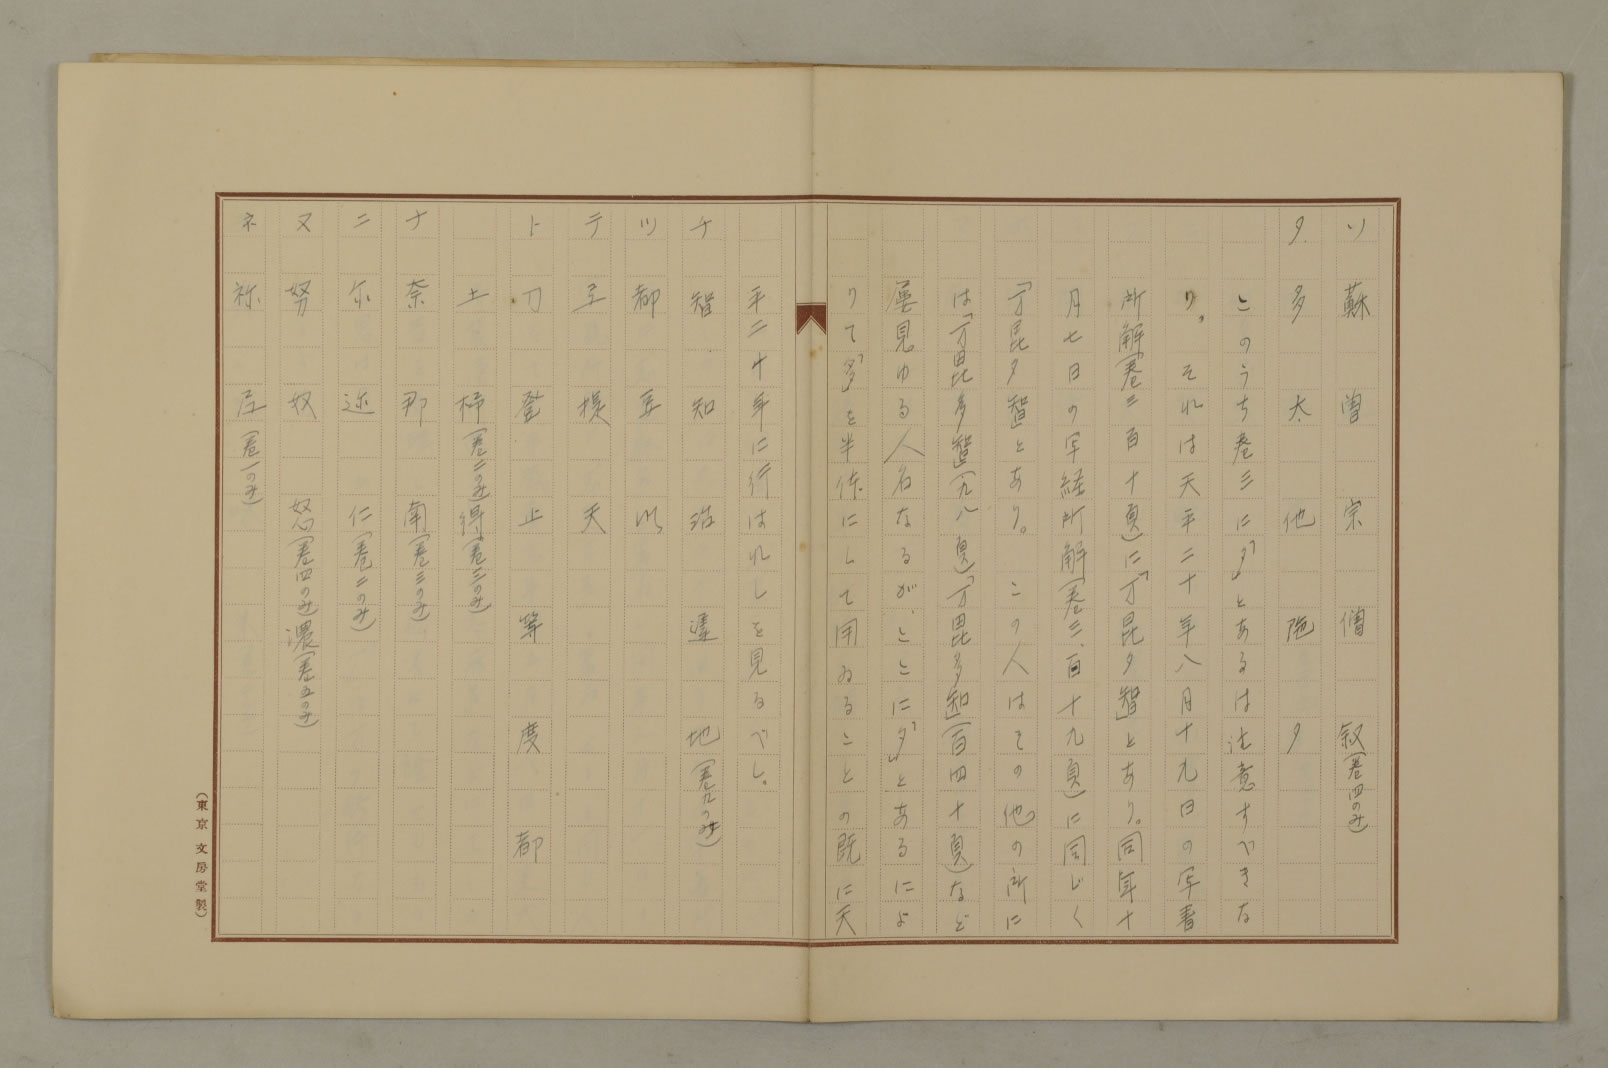 ソ 蘇 曽 宗 僧 叙(巻四のみ)
タ 多 太 他 陁 夕
このうち巻三に「夕」とあるは注意すべきな
り。それは天平二十年八月十九日の写書
所解(巻三、百十頁)に「丁昆夕智」とあり。同年十
月七日の写経所解(巻三、百十九頁)に同じく
「丁昆夕智」とあり。この人はその他の所に
は「丁毘多智」(九八頁)「丁毘多知」(百四十頁)など
屡見ゆる人名なるが、ここに「夕」とあるによ
りて「多」を半体にして用ゐることの既に天
平二十年に行はれしを見るべし。
チ 智 知 治 遅 地(巻九のみ)
ツ 都 豆
テ 弖 天
ト 刀 登 止 等 度 都
土 杼(巻二のみ)得(巻三のみ)
ナ 奈 那 南(巻三のみ)
ニ 尓 迩 仁(巻二のみ)
ヌ 努 奴 怒(巻四のみ)濃(巻五のみ)
ネ 祢 尼(巻一のみ)
(東京 文房堂製)